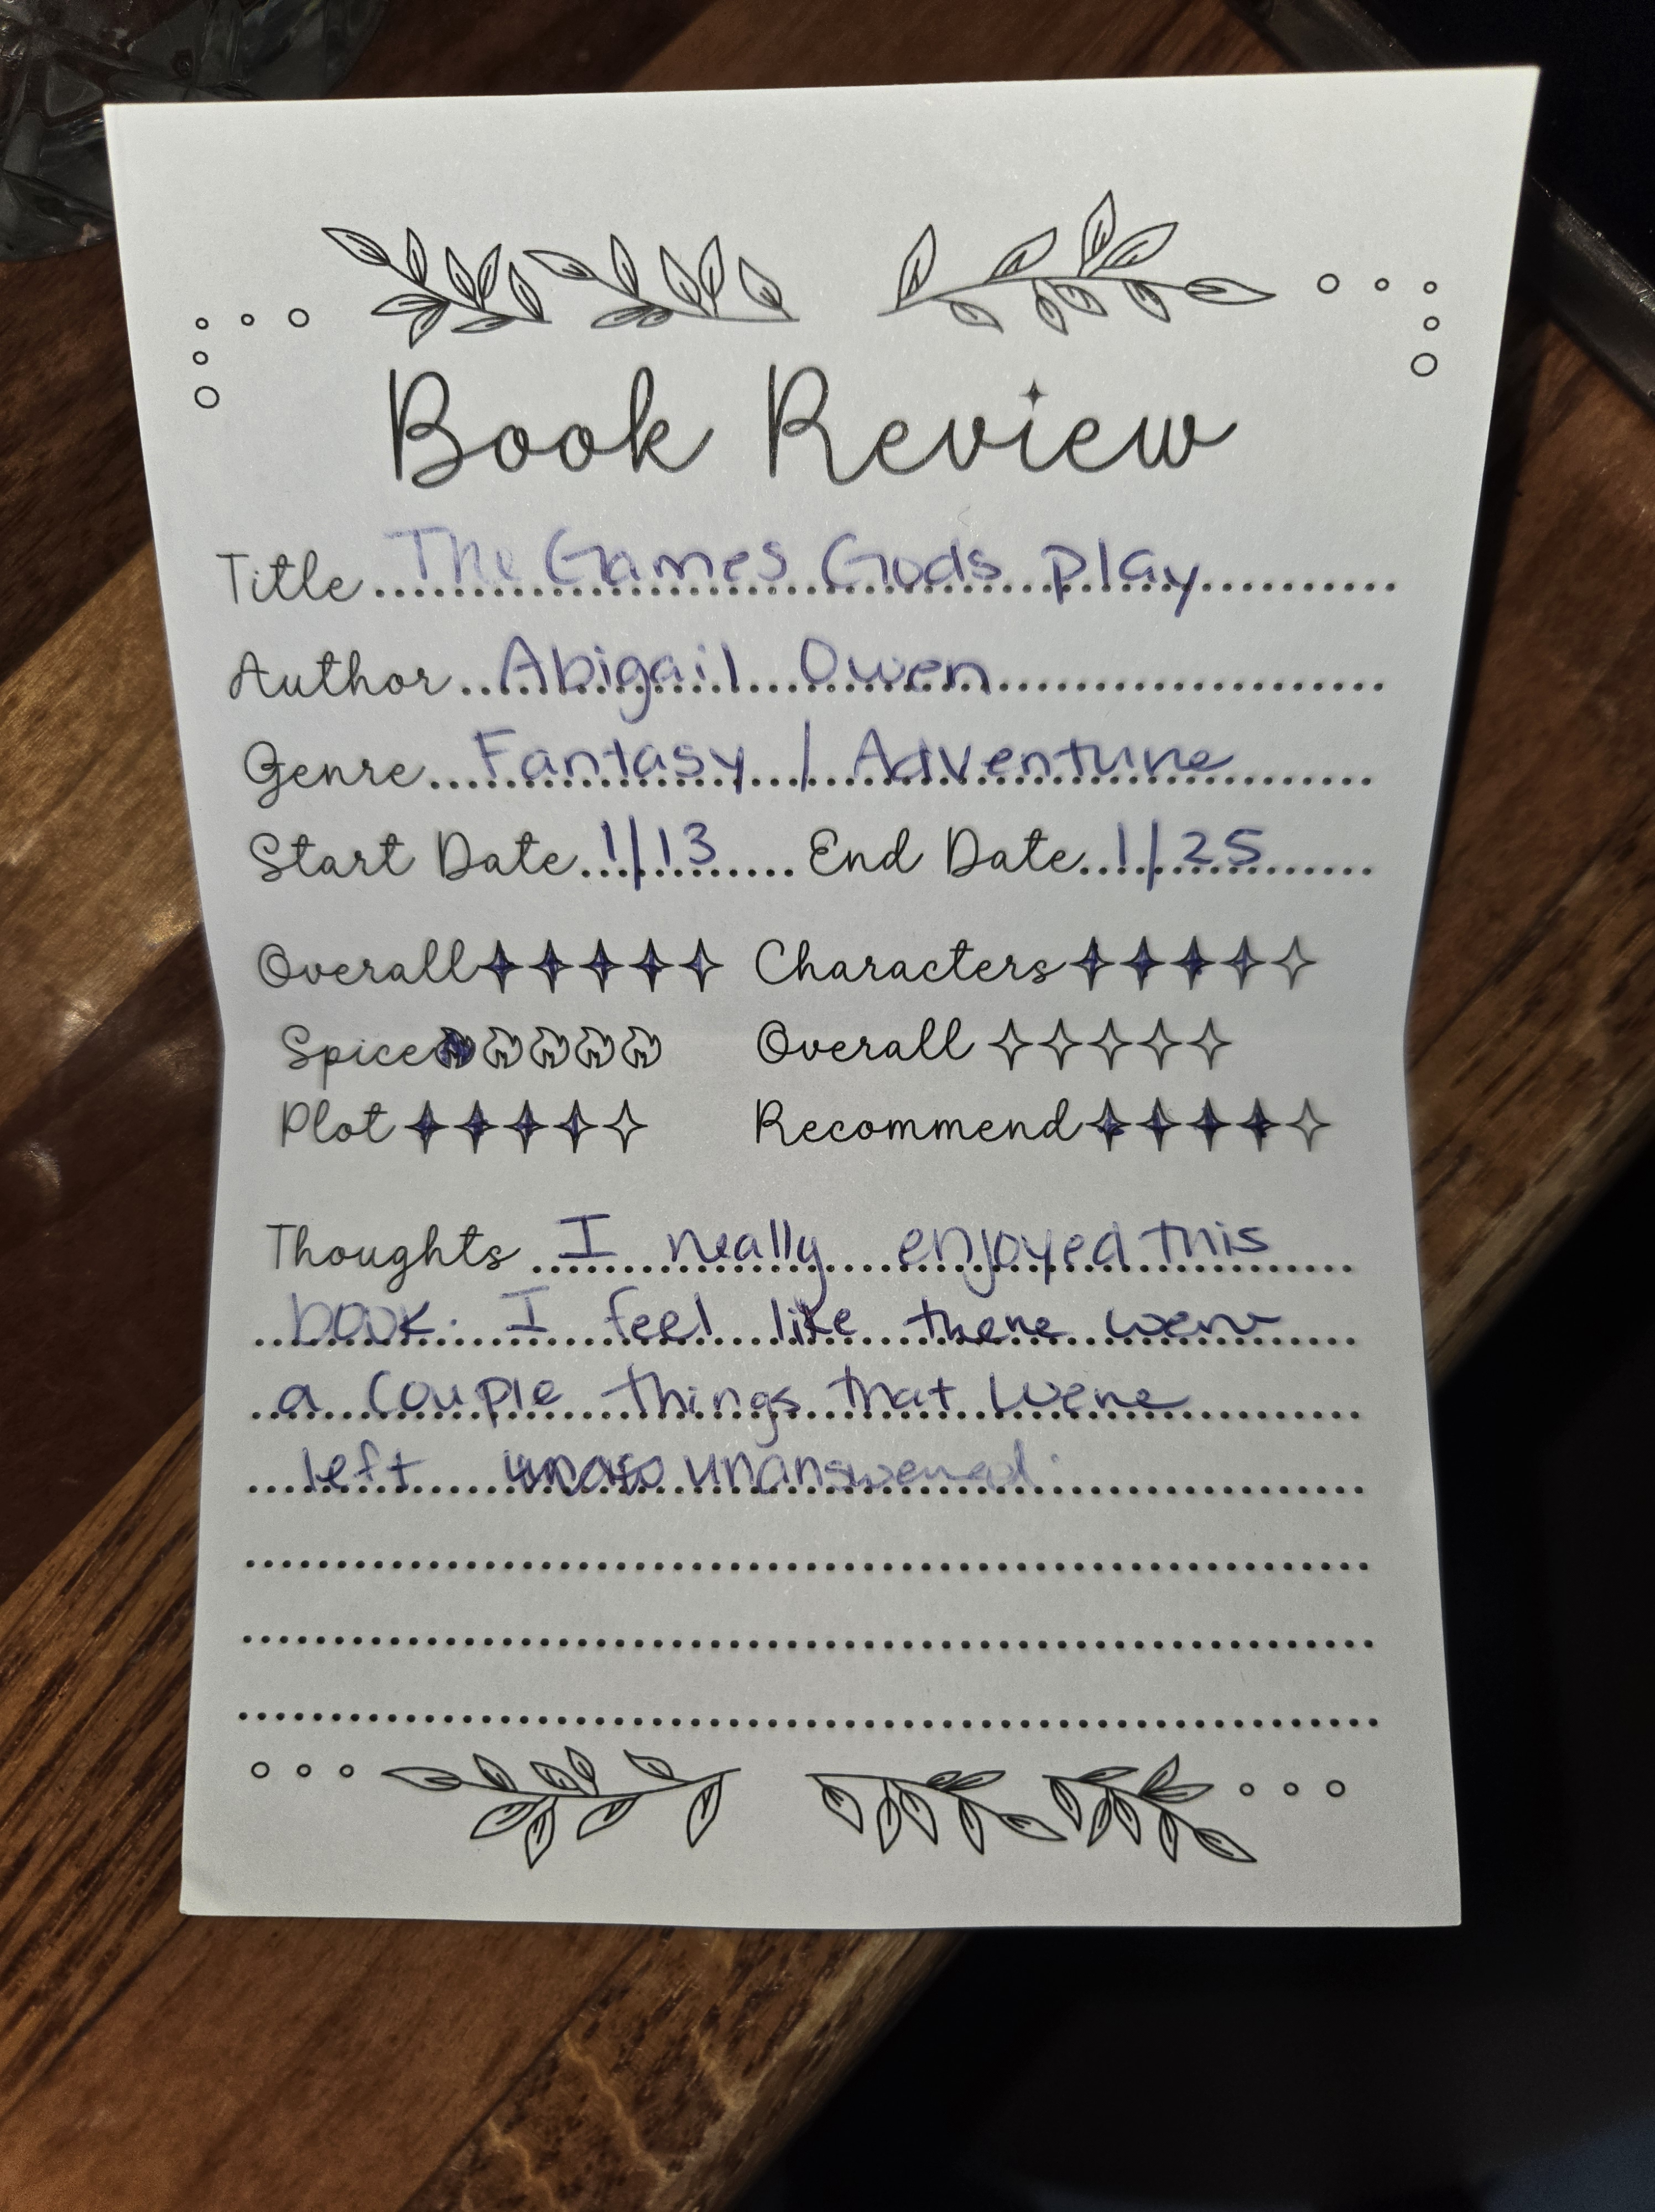 Book Review
Title The Games Gods play
Author Abigail Owen
Genre Fantasy / Adventure
Start Date 1/13 End Date 1/25
Overall Characters
Spice Overall
Plot Recommend
Thoughts I really enjoyed this
book. I feel like there were
a couple things that were
left unanswered.